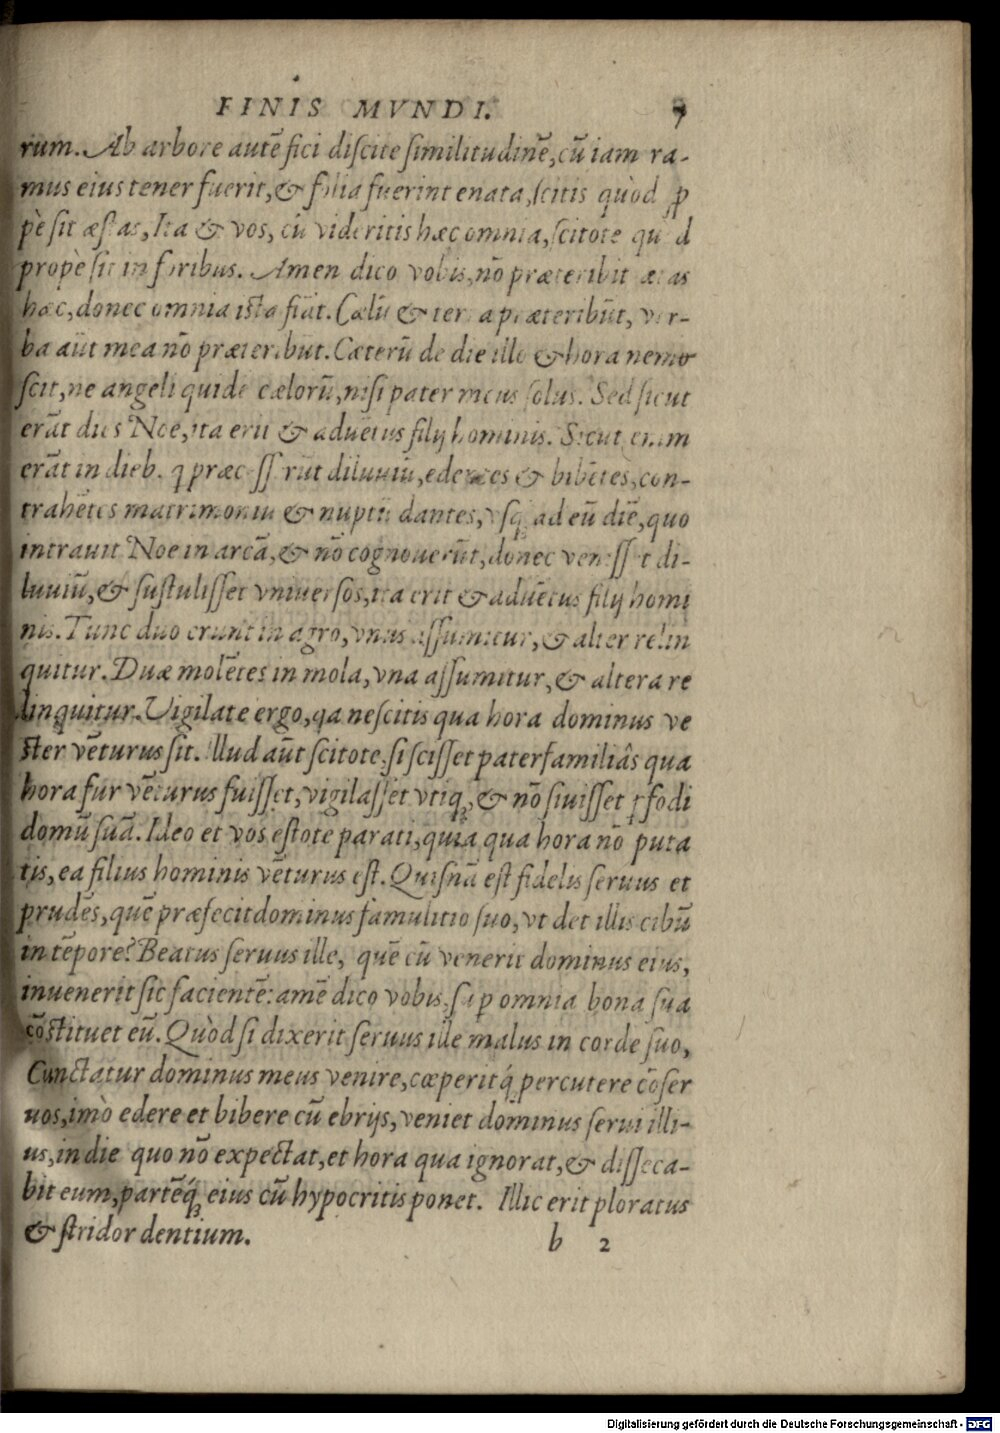 FINIS MVNDI. 7
rum. Ab arbore autē fici diſcite ſimilitudinē, cū iam ra-
mus eius tener fuerit, & folia fuerint enata, ſcitis quòd ꝓ
pè ſit æſtas, Ita & vos, cū videritis hæc omnia, ſcitote qu d
propè ſit in foribus. Amen dico vobis, nō præteribit ætas
hæc, donec omnia iſta fiāt. Cælū & terra præteribūt, ver-
ba aūt mea nō præteribūt. Cæterū de die illo & hora nemo
ſcit, ne angeli quidē cælorū, niſi pater meus ſolus. Sed ſicut
erāt dies Noe, ita erit & aduētus filij hominis. Sicut enim
erāt in dieb. q præceſſerūt diluuiū, edentes & bibētes, con-
trahētes matrimoniū & nuptū dantes, vſq; ad eū diē, quo
intrauit Noe in arcā, & nō cognouerūt, donec veniſſet di-
luuiū, & ſuſtuliſſet vniuerſos, ita erit & aduētus filij homi
nis. Tunc duo erunt in agro, vnus aſſumitur, & alter relin
quitur. Duæ molētes in mola, vna aſſumitur, & altera re
linquitur. Vigilate ergo, qa neſcitis qua hora dominus ve
ſter vēturus ſit. Illud aūt ſcitote, ſi sciſſet paterfamiliâs qua
hora fur vēturus fuiſſet, vigilaſſet vtiq;, & nō ſiuiſſet ꝑfodi
domū ſuā. Ideo et vos eſtote parati, quia qua hora nō puta
tis, ea filius hominis vēturus eſt. Quiſnā eſt fidelis ſeruus et
prudēs, quē præfecit dominus famulitio ſuo, vt det illis cibū
in tēpore? Beatus ſeruus ille, quē cū venerit dominus eius,
inuenerit ſic facientē: amē dico vobis, ſuꝑ omnia bona ſua
cōſtituet eū. Quòd ſi dixerit ſeruus ille malus in corde ſuo,
Cunctatur dominus meus venire, cœperitq́; percutere cōſer
uos, imò edere et bibere cū ebrijs, veniet dominus ſerui illi-
us, in die quo nō expectat, et hora qua ignorat, & diſſeca-
bit eum, partēq́; eius cū hypocritis ponet. Illic erit ploratus
& ſtridor dentium.
b 2
Digitalisierung gefördert durch die Deutsche Forschungsgemeinschaft - DFG